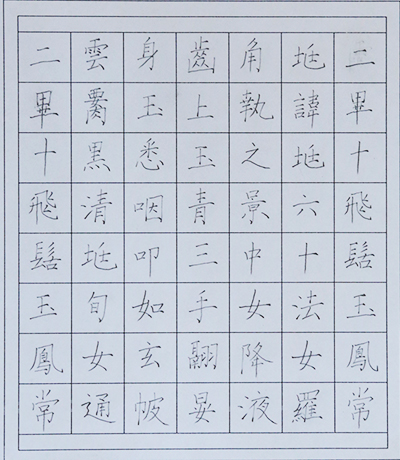 二畢十飛髻玉鳳常
地諱地六十法女羅
角執之景中女降液
齒上玉青三手翮晏
身玉悉咽叩如玄帔
雲黑清地旬女通
二畢十飛髻玉鳳常